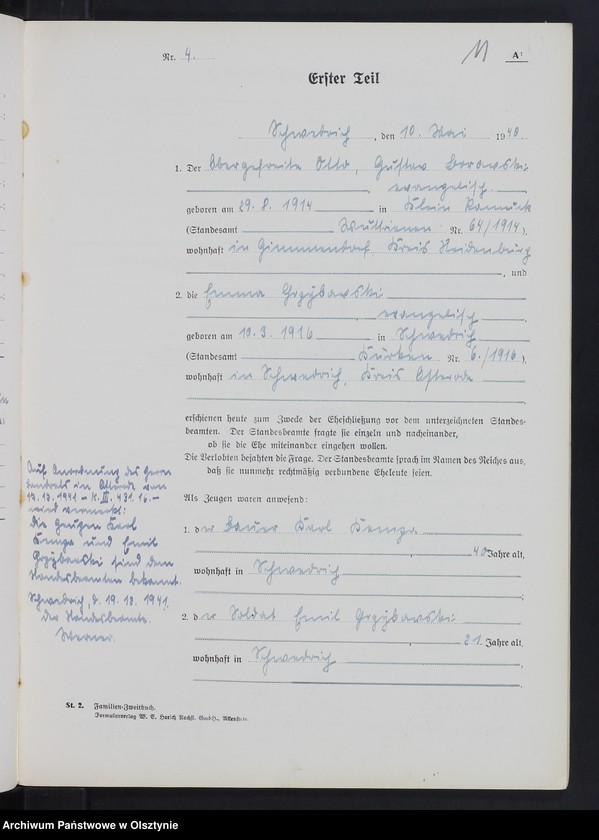 Nr. 4.
A¹
Erster Teil
Schwedrich, den 10. Mai 1940.
1. Der Obergefreite Otto, Gustav Borowski
, evangelisch.
geboren am 29. 8. 1914 in Klein Ramuck
(Standesamt Wuttrienen Nr. 64/1914),
wohnhaft in Gimmendorf, Kreis Neidenburg
, und
2. die Emma Grzybowski
, evangelisch
geboren am 10. 3. 1916 in Schwedrich
(Standesamt Kurken Nr. 6./1916),
wohnhaft in Schwedrich, Kreis Osterode
,
erschienen heute zum Zwecke der Eheschließung vor dem unterzeichneten Standes-
beamten. Der Standesbeamte fragte sie einzeln und nacheinander,
ob sie die Ehe miteinander eingehen wollen.
Die Verlobten bejahten die Frage. Der Standesbeamte sprach im Namen des Reiches aus,
daß sie nunmehr rechtmäßig verbundene Eheleute seien.
Als Zeugen waren anwesend:
1. der Bauer Karl Kempa
, 40 Jahre alt,
wohnhaft in Schwedrich
;
2. der Soldat Emil Grzybowski
, 21 Jahre alt,
wohnhaft in Schwedrich
.
Auf Anordnung des Herrn
Landrats in Osterode vom
– K. III. 431. 16. –
wird vermerkt:
Die Zeugen Karl
Kempa und Emil
Grzybowski sind dem
Standesbeamten bekannt.
Schwedrich, d. 19. 12. 1941.
Der Standesbeamte.
Werner.
St. 2. Familien-Zweitbuch.
Formularverlag W. E. Harich Nachfl. GmbH., Allenstein.
Archiwum Państwowe w Olsztynie